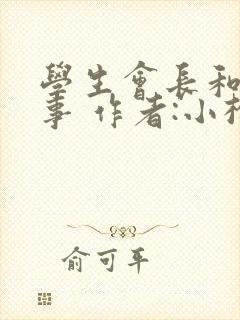 學生會長和
事 作者:小
俞可平